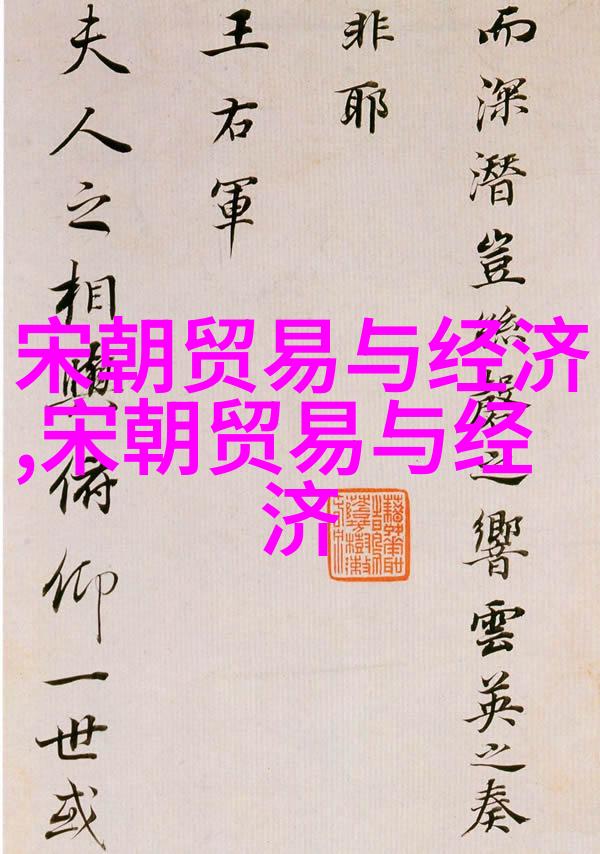 而深潛豈絲之響雲英之奏
非耶
王右軍
夫人之相與俯仰一世或
宋朝贸易与经济
,宋朝贸易与经
济